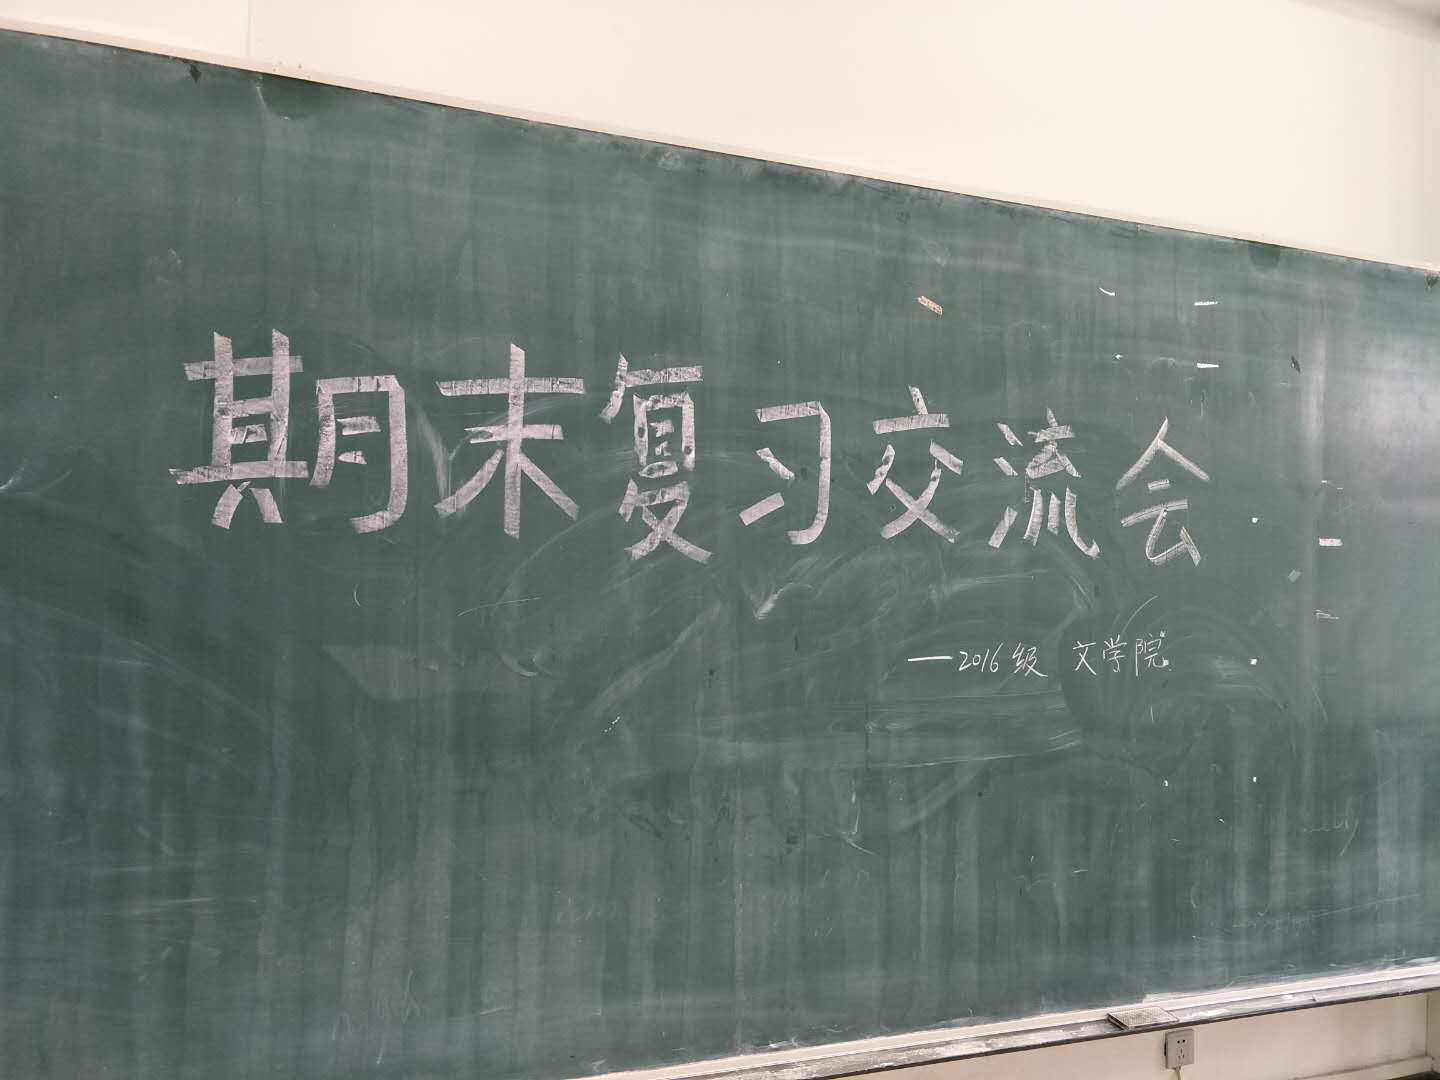 期末复习交流会
—2016级 文学院